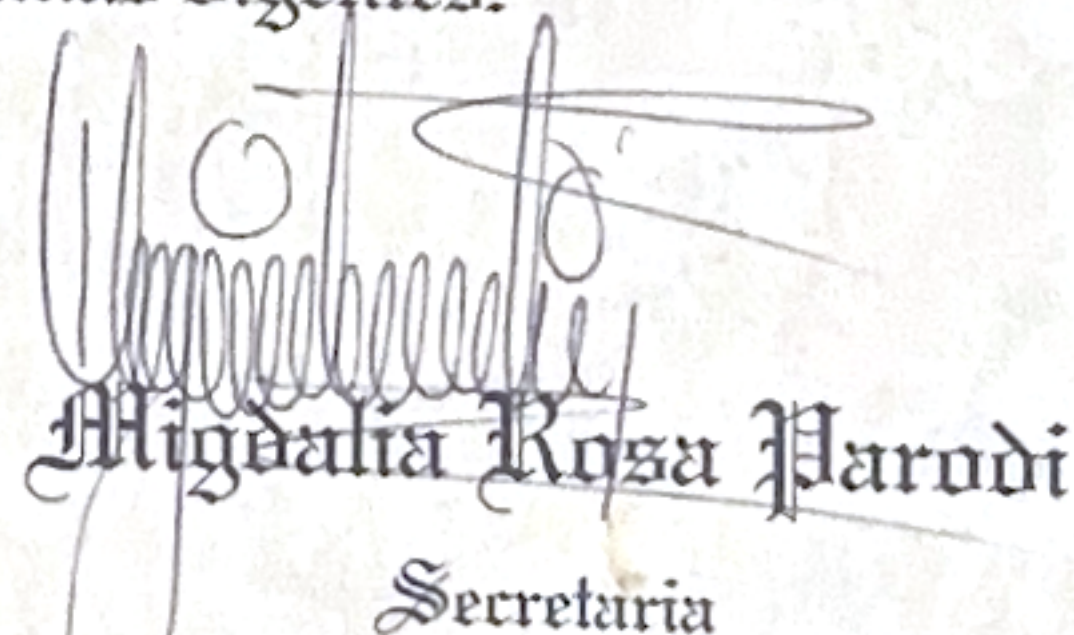 Migdalia Rosa Parodi
Secretaria